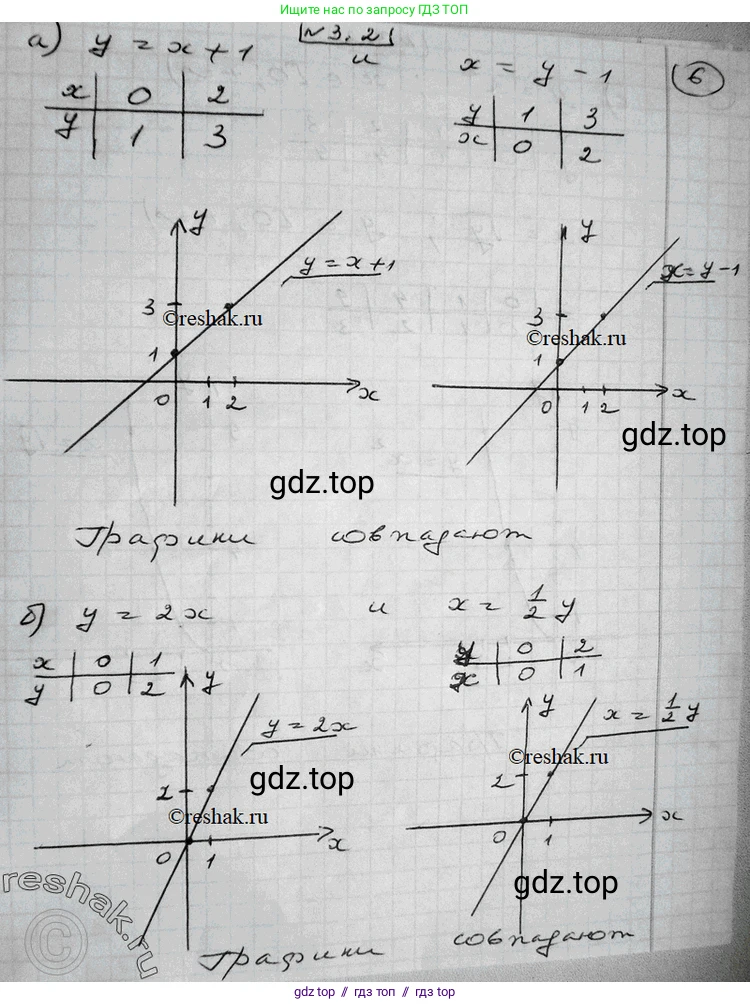 Ищите нас по запросу ГДЗ ТОП
№3.2
6
а) y = x + 1 и x = y - 1
x 0 2
y 1 3
y 1 3
x 0 2
y
y = x + 1
3
©reshak.ru
1
0 1 2 x
gdz.top
y
x = y - 1
3
©reshak.ru
1
0 1 2 x
gdz.top
Графики совпадают
б) y = 2x и x = 1/2 y
x 0 1
y 0 2
y 0 2
x 0 1
y
y = 2x
gdz.top
2
©reshak.ru
0 1 x
y
x = 1/2 y
©reshak.ru
2
0 1 x
gdz.top
reshak.ru
©
Графики совпадают
gdz top // гдз топ // gdz.top